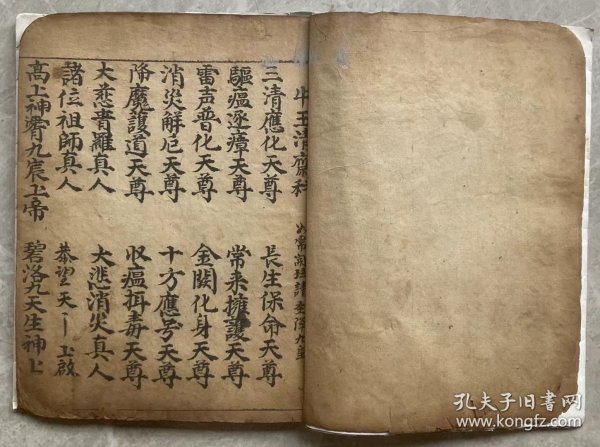 牛王清齋科
三清應化天尊 長生保命天尊
驅瘟逐瘴天尊 常来擁護天尊
雷声普化天尊 金闕化身天尊
消災解厄天尊 十方應号天尊
降魔護道天尊 收瘟攝毒天尊
大慈普羅真人 大悲消災真人
諸位祖師真人 恭望天 上啟
髙上神霄九宸上帝 碧洛九天生神上
孔夫子旧书网
www.kongfz.com